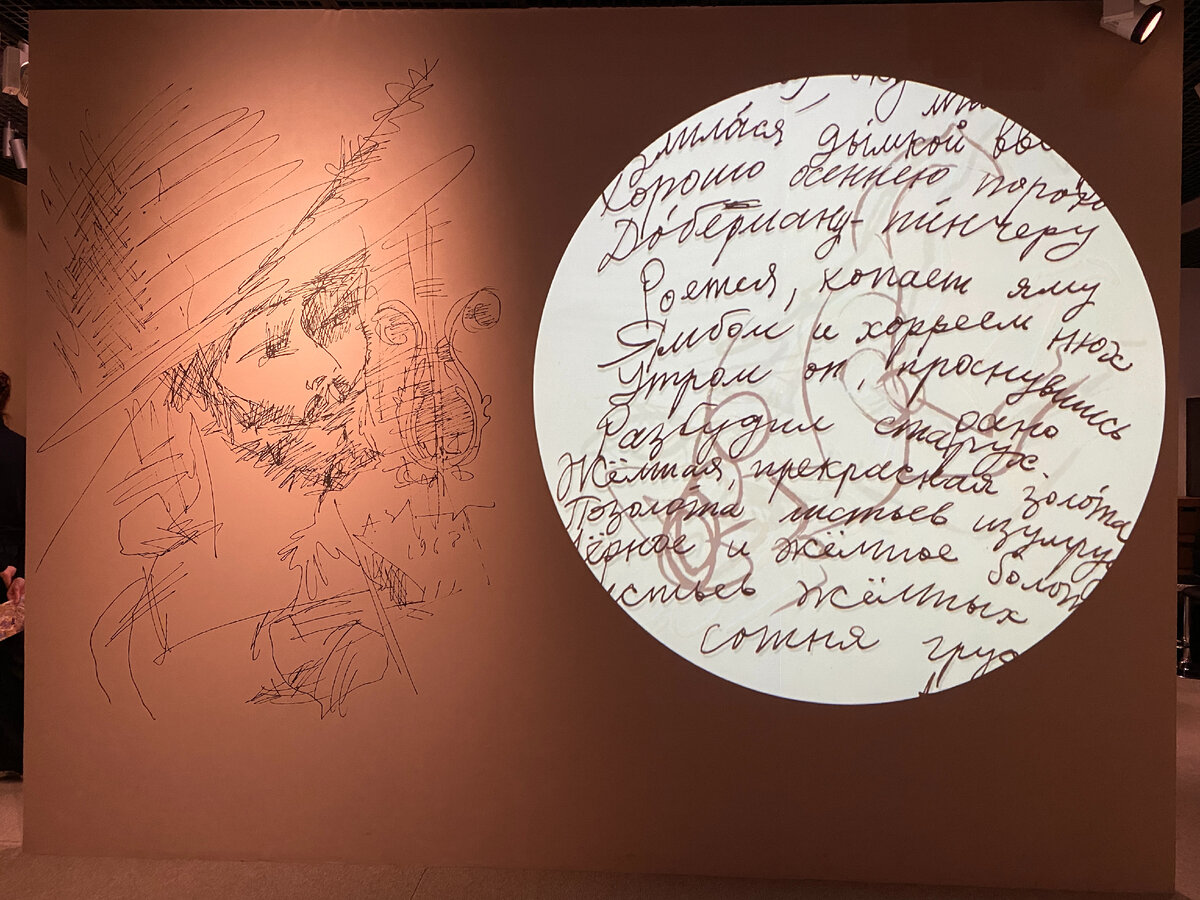 дымкой
Хорошо осеннею
До́берману-пи́нчеру
Роется, копает яму
Ямбом и хорреем нюх
Утром он, проснувшись
рано
Разбудил старух.
Жёлтая, прекрасная золо́та
Позоло́та листьев изумру
Чёрное и жёлтое болот
истьев жёлтых
сотня груд